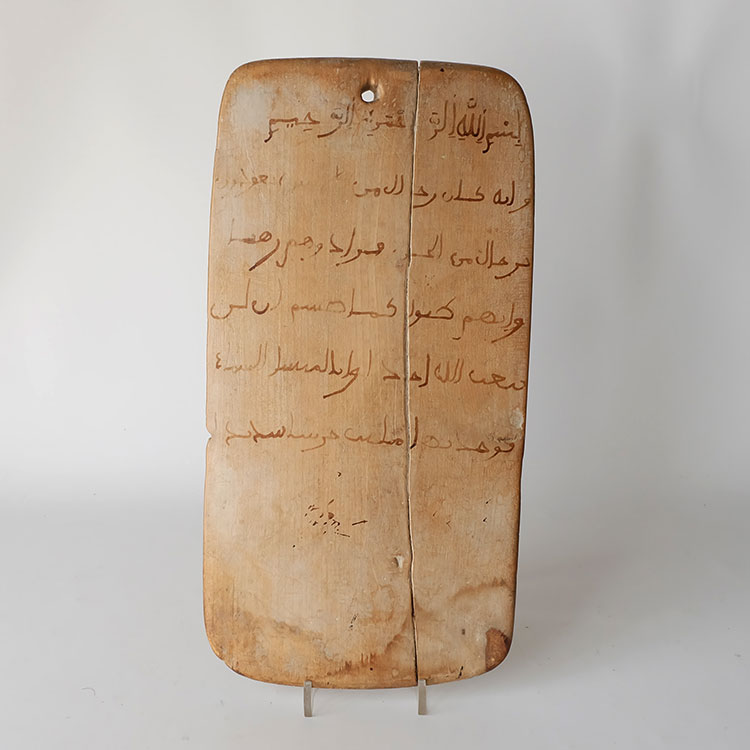 بسم الله الرحمن الرحيم
وانه كان رجال من يعوذون
برجال من الجن فزادوهم رهقا
وانهم ظنوا كما ظننتم ان لن
يبعث الله احدا وانا لمسنا السماء
فوجدناها ملئت حرسا شديدا